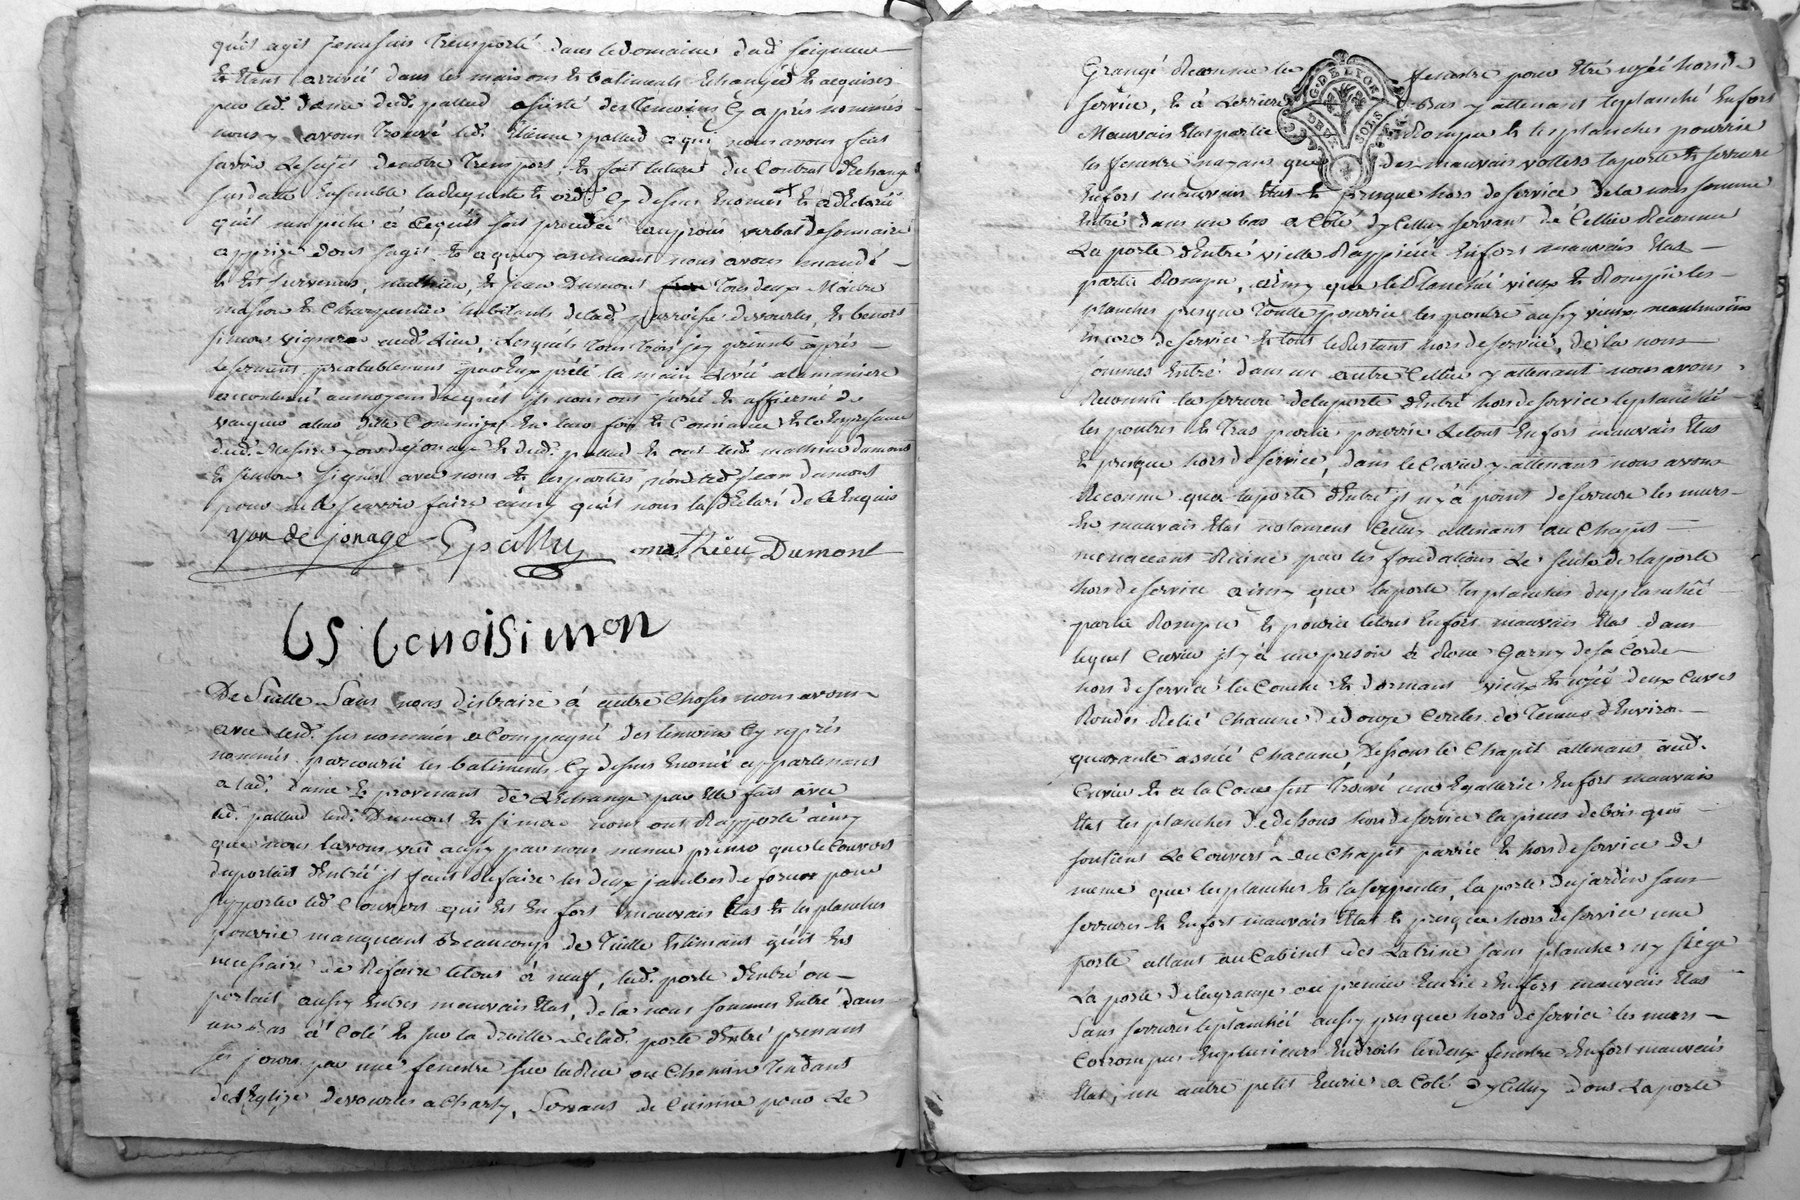 qu'il agit je me suis transporté dans le domaine dud. seigneur
et étant arrivé dans les maisons et batiments échangés et acquises
par lad. dame dud. pallud assisté des témoins cy après nommés
nous y avons trouvé led. pallud a qui nous avons fait
savoir le sujet de notre transport, et fait lecture du contrat d'échange
ensemble la requete et ord. cy dessus et a déclaré
qu'il n'empeche a ce qu'il soit procédé au procès verbal de sommaire
apprise dont s'agit et a quoy nous avons mandé
et est survenus, mathieu, et jean Dumont tous deux Maitre
masson et charpentier habitants de lad. parroisse de vourles, et benoit
simon vigneron aud. lieu, lesquels tous trois icy présents après
le serment préalablement par eux prété la main levée a la maniere
accoutumé au moyen duquel ils nous ont juré et affirmé de
vaquer a leur ditte commission en leur foy et consience et en présence
dud. yon de jonage et dud. pallud et ont led. mathieu dumont
et simon signés avec nous et les parties, non led. jean dumont
pour ne le sçavoir faire ainsy qu'il nous l'a déclaré de ce enquis
yon de jonage mathieu Dumont
benoisimon
De suitte sans nous distraire à autre choses nous avons
avec led. sus nommés accompagné des temoins cy après
nommés parcouru les batiments cy dessus énoncé appartenant
a lad. dame et provenant de l'échange par elle fait avec
led. pallud led. Dumont et simon nous ont rapporté ainsy
que nous l'avons vu aussy par nous meme primo que le couvert
du portail d'entrée il faut refaire les deux jambes de force pour
supporter led. couvert qui est en fort mauvais état et les planches
pourrie manquant beaucoup de tuille estimant qu'il est
necessaire de refaire le tout à neuf, lad. porte d'entré ou
portail aussy en tres mauvais état, de la nous sommes entré dans
un bas a coté et sur la droitte de lad. porte d'entré prenant
ses jours par une fenestre sur la rue ou chemin tendant
de l'Eglize de vourles a charly, servant de cuisine pour le
Grangé reconnu la fenestre pour étré uzéé hors de
service, et à derriere bas y attenant le planché en fort
Mauvais état partie rompu et les planches pourrie
les fenestre n'ayant que des mauvais vollets la porte et serrure
en fort mauvais état et presque hors de service de la nous somme
entré dans un bas a coté d'ycelluy servant de cellier reconnu
La porte d'entré vielle rappiécé en fort mauvais état
partie rompu, ainsy que le planché vieux et rompu les
planches presque toutte pourrie les poutre aussy vieux neantmoins
encore de service et tout le restant hors de service, de la nous
sommes entré dans un autre cellier y attenant nous avons
reconnu la serrure de la porte d'entré hors de service le planché
les poutres et tras partie pourrie le tout en fort mauvais état
et presque hors de service, dans le cuvier y attenant nous avons
reconnu que la porte d'entré il n'y a point de serrure les murs
en mauvais état notament celluy attenant au chapit
menaceant ruine par les fondations le seuil de la porte
hors de service ainsy que la porte les planches du planché
partie rompu et pourie le tout en fort mauvais état dans
lequel cuvier il y a un presoir à roue garny de sa corde
hors de service la couche et dormant vieux et uzéé deux cuves
Rondes relié chacune de douze cercles de tenus d'environ
quarante asnéé chacune, dessous le chapit attenant aud.
cuvier et a la cour est trouvé une gallerie en fort mauvais
état les planches de dessous hors de service la pieces de bois qui
soutient le couvert du chapit parrée et hors de service de
meme que les planches et la serpentes, la porte du jardin sans
serrures et en fort mauvais état et presque hors de service une
porte allant au cabinet des latrine sans planche ny siege
La porte de la grange ou premier écurie en fort mauvais état
Sans serrures le planchéé aussy presque hors de service les murs
corrompus en plusieurs endroits les deux fenestre en fort mauvais
état, un autre petit écurie a coté d'ycelluy dont la porte